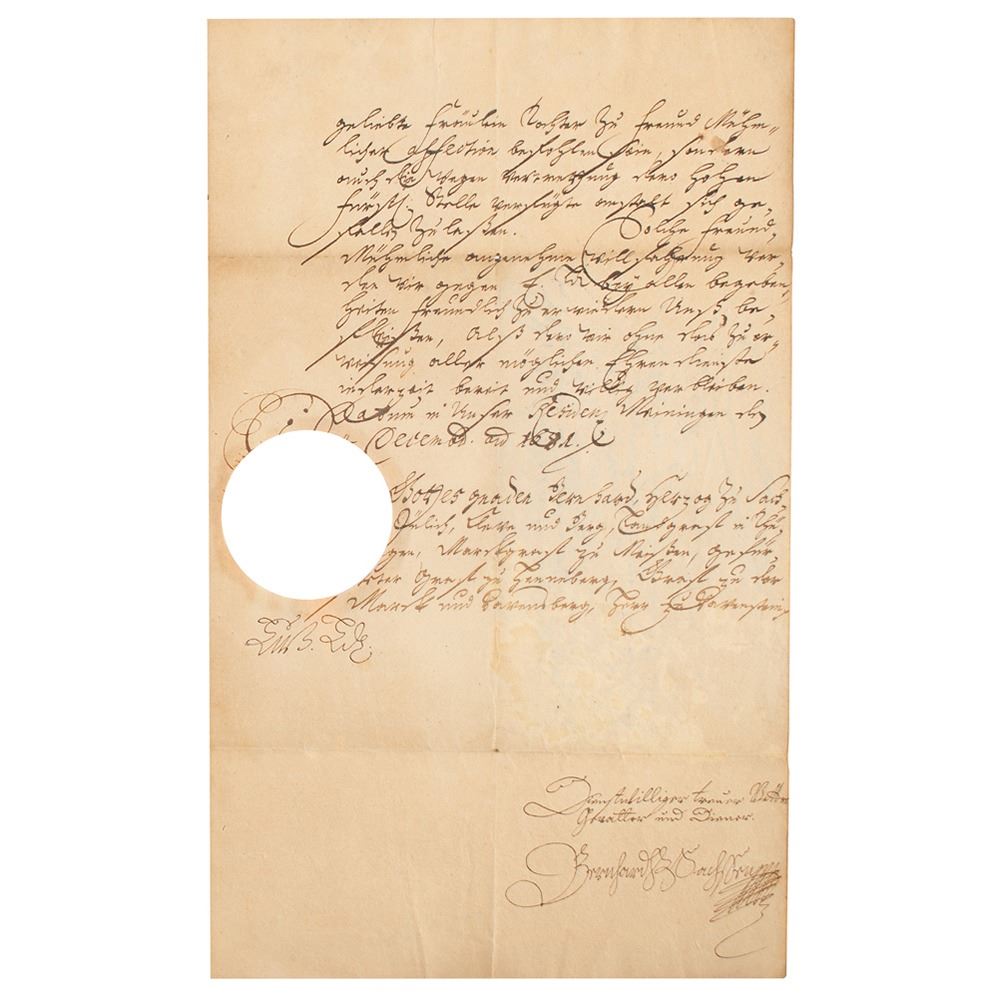 geliebte Fräulein Tochter zu Freund Mühm-
licher affection befohlen sein, sondern
auch die wegen vertrettung dero hohen
Fürstl. Stelle verfügte anstalt sich ge-
fallen zulaßen. Solche Freund-
Mühmliche angenehme willfahrung wer-
den wir gegen E. Ld bey allen begeben-
heiten freundlich zuerwiedern Unß be-
fleißen, Alß dero wir ohne das zu er-
weisung aller möglichen Ehrendienste
iederzeit bereit und willig verbleiben.
Datum in Unser Residenz Meiningen den
Decemb. ao 1681.
Gottes gnaden Bernhard, Herzog zu Sach-
Jülich, Cleve und Berg, Landgraff in Thü-
gen, Marckgraff zu Meißen, gefür-
ter Graff zu Henneberg, Graff zu der
Marck und Ravensberg, Herr zu Ravenstein
Dienstwilliger treuer Vetter
Gevatter und Diener.
Bernhard HZSachssen